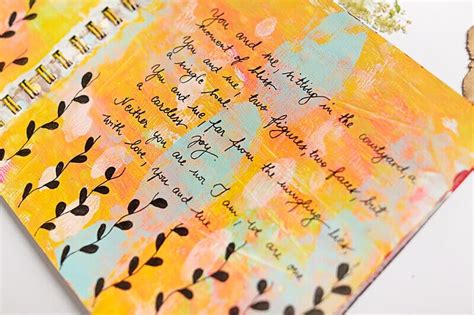 You and me, sitting in the courtyard, a
moment of bliss
You and me, two figures, two faces, but
a single soul.
You and me far from the lies
a careless joy
Neither you are nor I am, we are one
with love, you and me